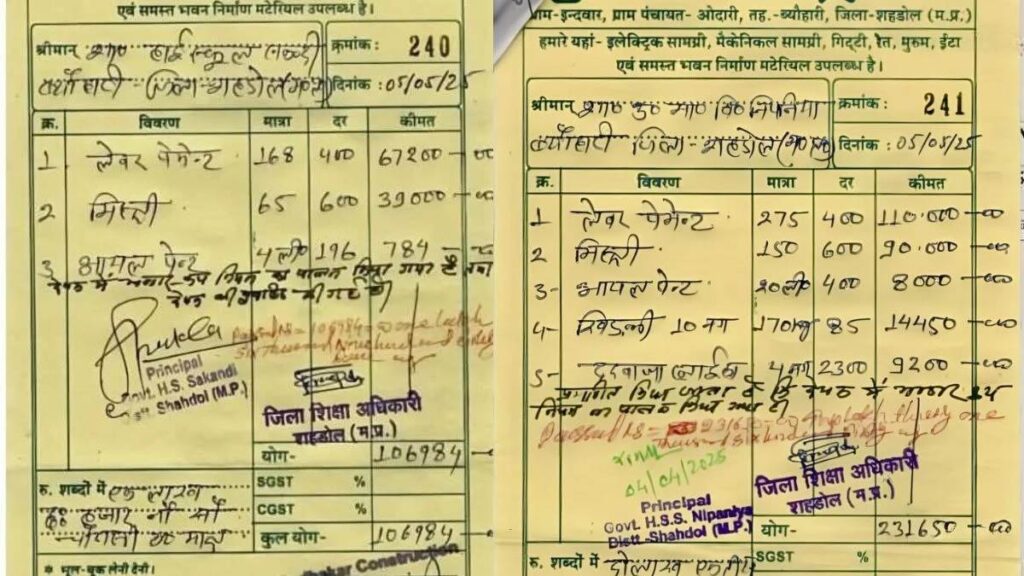 एवं समस्त भवन निर्माण मटेरियल उपलब्ध है।
श्रीमान् शा० हाई स्कूल सकन्दी
क्रमांक : 240
ब्यौहारी जिला-शहडोल (म०प्र०)
दिनांक : 05/05/25
क्र. विवरण मात्रा दर कीमत
1 लेवर पेमेन्ट 168 400 67200-00
2 मिस्त्री 65 600 39000-00
3 आयल पेन्ट 4 ली० 196 784
Passed Rs = 106984 = 00 one lakh
Six thousand Nine hundred and eighty
Principal
Govt. H.S. Sakandi
Distt. Shahdol (M.P.)
जिला शिक्षा अधिकारी
शहडोल (म.प्र.)
योग- 106984
SGST %
CGST %
रु. शब्दों में एक लाख
छः हजार नौ सौ
चौरासी रू मात्र
कुल योग- 106984
* भूल-चूक लेनी देनी।
Construction
ग्राम-इन्दवार, ग्राम पंचायत- ओदारी, तह.-ब्यौहारी, जिला-शहडोल (म.प्र.)
हमारे यहां- इलेक्ट्रिक सामग्री, मैकेनिकल सामग्री, गिट्टी, रेत, मुरुम, ईटा
एवं समस्त भवन निर्माण मटेरियल उपलब्ध है।
श्रीमान् शा० उ० मा० वि० निपनिया
क्रमांक : 241
ब्यौहारी जिला-शहडोल (म०प्र०)
दिनांक : 05/05/25
क्र. विवरण मात्रा दर कीमत
1 लेवर पेमेन्ट 275 400 110.000-00
2 मिस्त्री 150 600 90.000-00
3- आयल पेन्ट 20 ली० 400 8000-00
4- खिड़की 10 नग 170 kg 85 14450-00
5- दरवाजा 4 नग 2300 9200-00
Passed Rs = 231650-00
04/04/2025
Principal
Govt. H.S.S. Nipaniya
Distt -Shahdol (M.P.)
जिला शिक्षा अधिकारी
शहडोल (म.प्र.)
योग- 231650-00
रु. शब्दों में दो लाख
SGST %